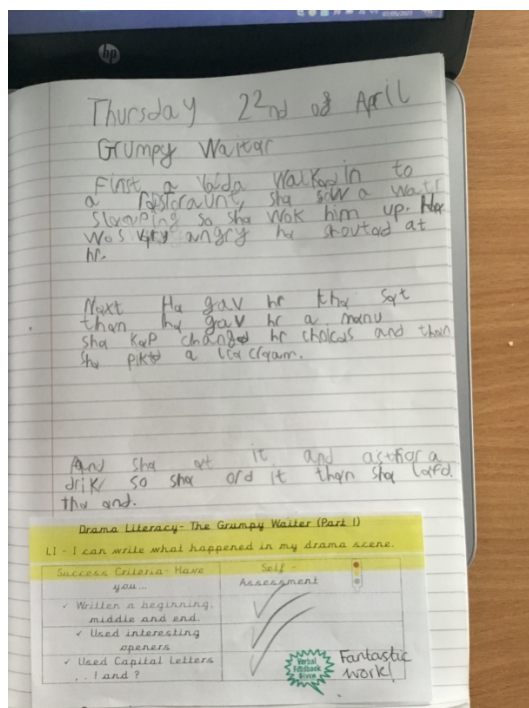 hp
Thursday 22nd of April
Grumpy Waitar
First a lada walkedin to
a rastoraunt, sha sow a watr
slaeping so sha wok him up. Ha
wos vary angry ha shoutad at
hr.
Naxt Ha gav hr tha sat
than ha gav hr a manu
sha kap changd hr choicas and than
sha pikd a ica craam.
And sha at it and ast for a
drik so sha ord it than sha lafd.
tha and.
Drama Literacy- The Grumpy Waiter (Part 1)
LI - I can write what happened in my drama scene.
Success Criteria- Have you...
Self - Assessment
✓ Written a beginning, middle and end.
✓ Used interesting openers
✓ Used Capital Letters
, . ! and ?
Verbal Feedback Given
Fantastic work!